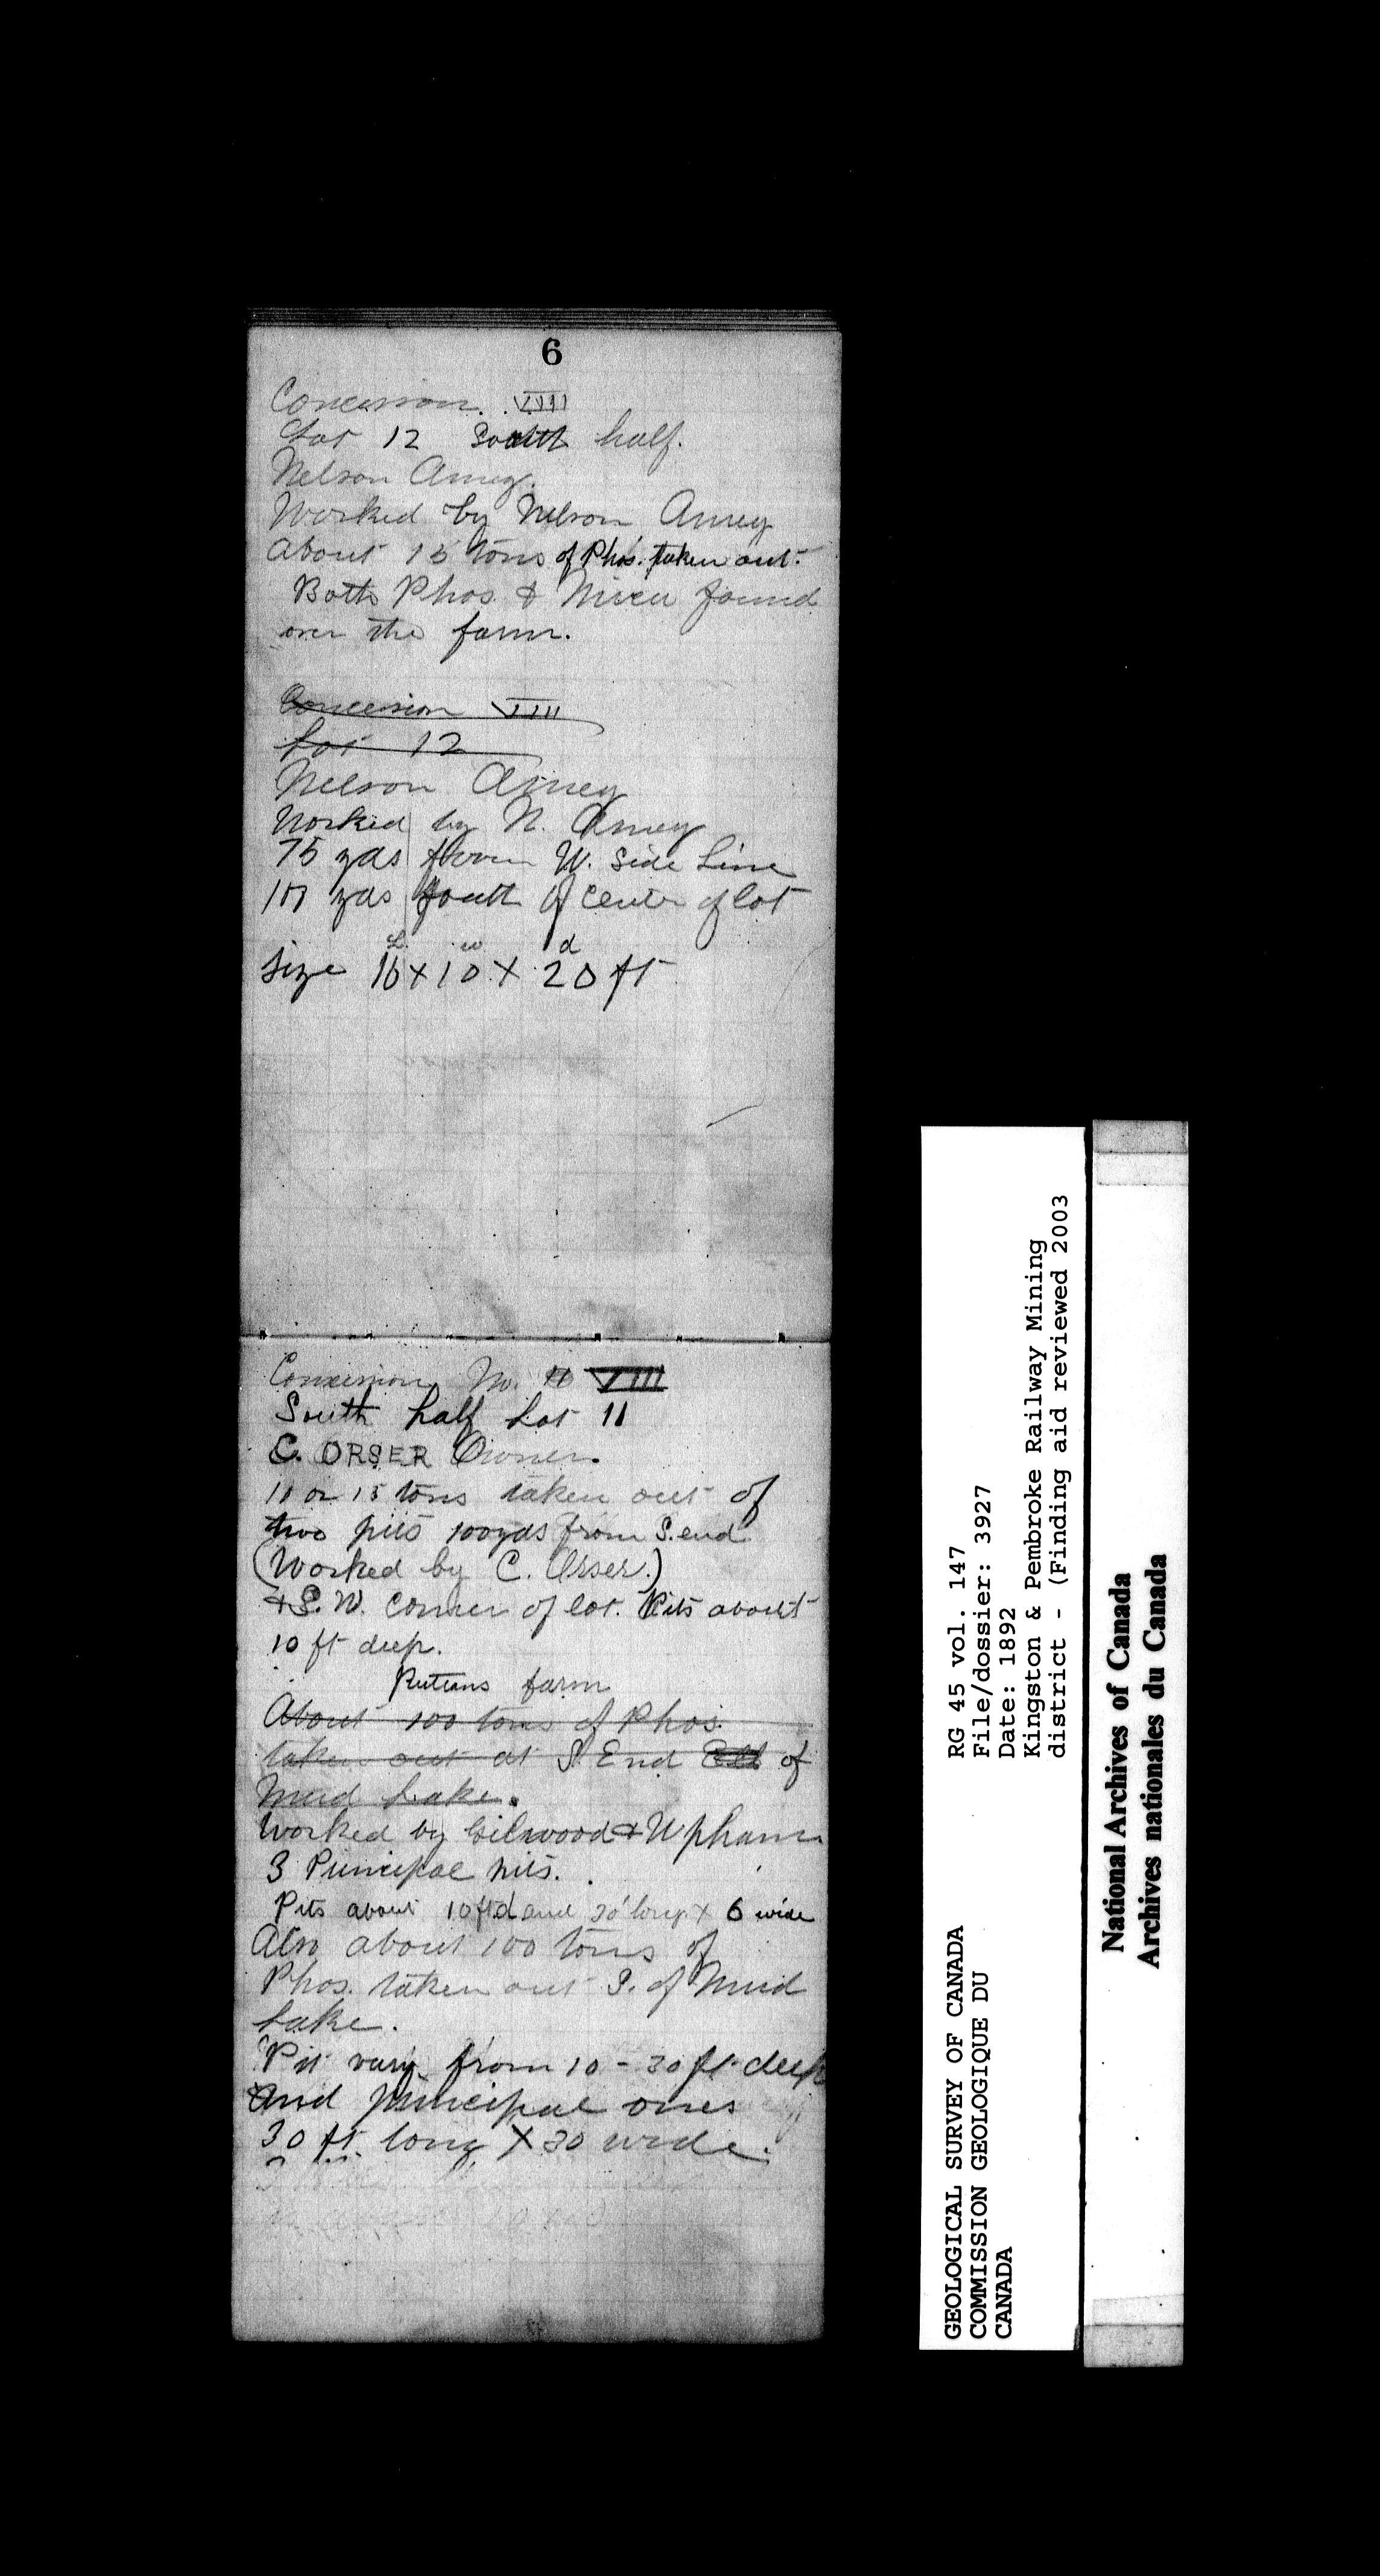 6
Concession. VIII
Lot 12 South half.
Nelson Amey.
Worked by Nelson Amey
About 15 tons of Phos. taken out.
Both Phos. & Mica found
over the farm.
Concession VIII
Lot 12
Nelson Amey
Worked by N. Amey
75 yds from W. Side Line
yds South of Center of lot
L w d
Size 16 x 10 x 20 ft
Concession No. VIII
South half Lot 11
C. ORSER Owner.
10 or 15 tons taken out of
two pits 100 yds from S. end
(Worked by C. Orser.)
& S. W. corner of lot. Pits about
10 ft deep.
farm
About 100 tons of Phos.
taken out at S. End of
Mud Lake.
Worked by & Upham
3 Principal pits.
Pits about 10 ft d and 30' long x 6 wide
Also about 100 tons of
Phos. taken out S. of Mud
Lake.
Pit vary from 10 - 30 ft deep
and principal ones
30 ft. long x 30 wide.
GEOLOGICAL SURVEY OF CANADA
COMMISSION GEOLOGIQUE DU
CANADA
RG 45 vol. 147
File/dossier: 3927
Date: 1892
Kingston & Pembroke Railway Mining
district - (Finding aid reviewed 2003
National Archives of Canada
Archives nationales du Canada